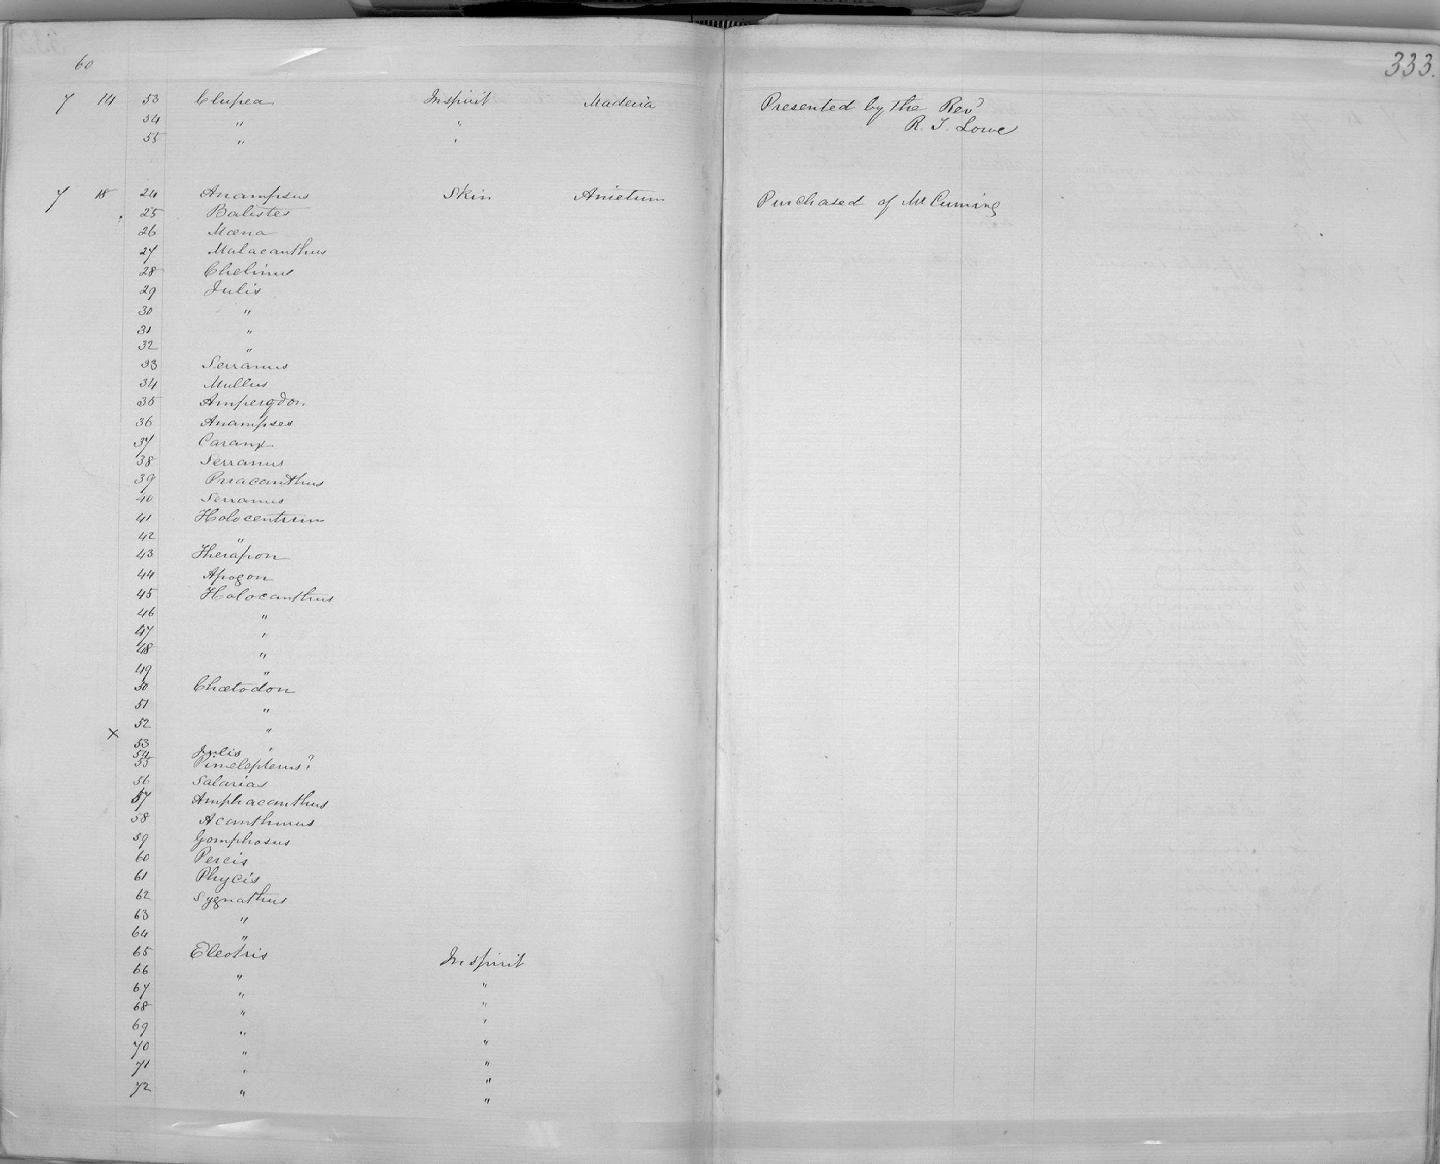 333.
60
7 14 53 Clupea In spirit Maderia Presented by the Revd
54 " " R. T. Lowe
55 " "
7 18 24 Anampsus Skin Anietum Purchased of Mr Cuming
25 Balistes
26 Mæna
27 Malacanthus
28 Chelinus
29 Julis
30 "
31 "
32 "
33 Serranus
34 Mullus
35
36 Anampses
37 Caranx
38 Serranus
39 Priacanthus
40 Serranus
41 Holocentrum
42 "
43 Therapon
44 Apogon
45 Holocanthus
46 "
47 "
48 "
49 "
50 Chætodon
51 "
52 "
× 53 "
54 Julis
55 Pimelepterus?
56 Salarias
57 Amphacanthus
58 Acanthurus
59 Gomphosus
60 Percis
61 Phycis
62 Sygnathus
63 "
64 "
65 Eleotris In spirit
66 " "
67 " "
68 " "
69 " "
70 " "
71 " "
72 " "